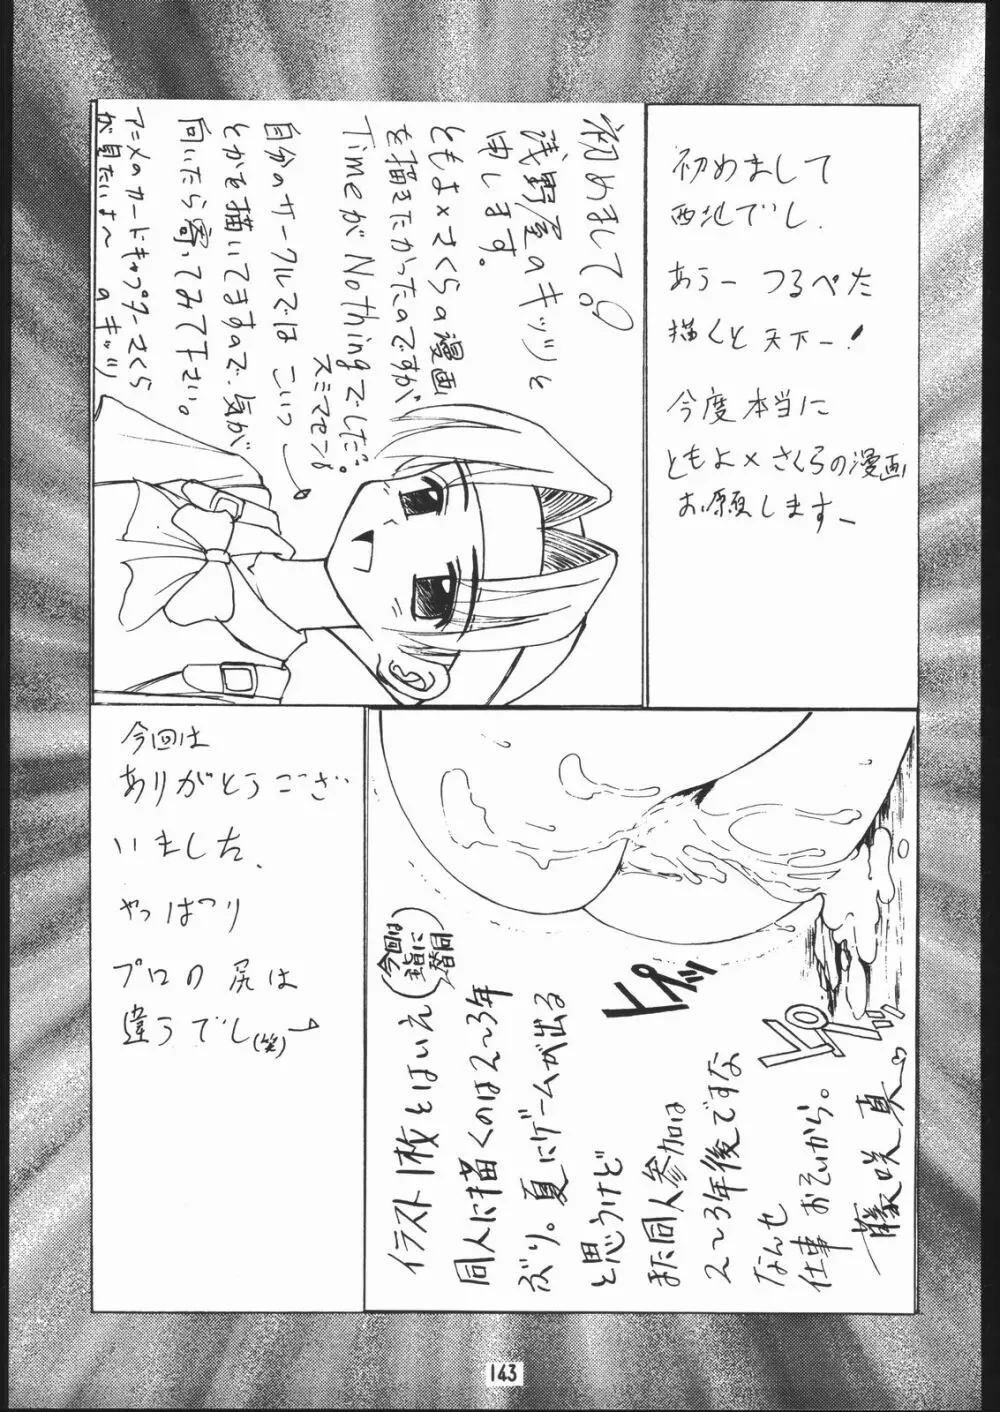 初めまして
西地でし.
あうー つるぺた
描くと天下一!
今度本当に
ともよ×さくらの漫画
お願します-
初めまして。
浅野屋のキッツと
申します。
ともよ×さくらの漫画
を描きたかったのですが
TimeがNothingでした。
スミマセン
自分のサークルでは こいつ→
とかを描いてますので、気が
向いたら寄ってみて下さい。
アニメのカードキャプターさくら
が見たいよ〜 のキッツ
今回は
ありがとうござ
いました.
やっぱつり
プロの尻は
違うでし(笑)
ヒプッ
ヒプッ
イラスト1枚とはいえ(今回は
主旨に
賛同)
同人に描くのは2〜3年
ぶり。夏にゲームが出る
と思うけど
また同人参加は
2〜3年後ですな
なんせ
仕事おそいから。
藤咲真
143